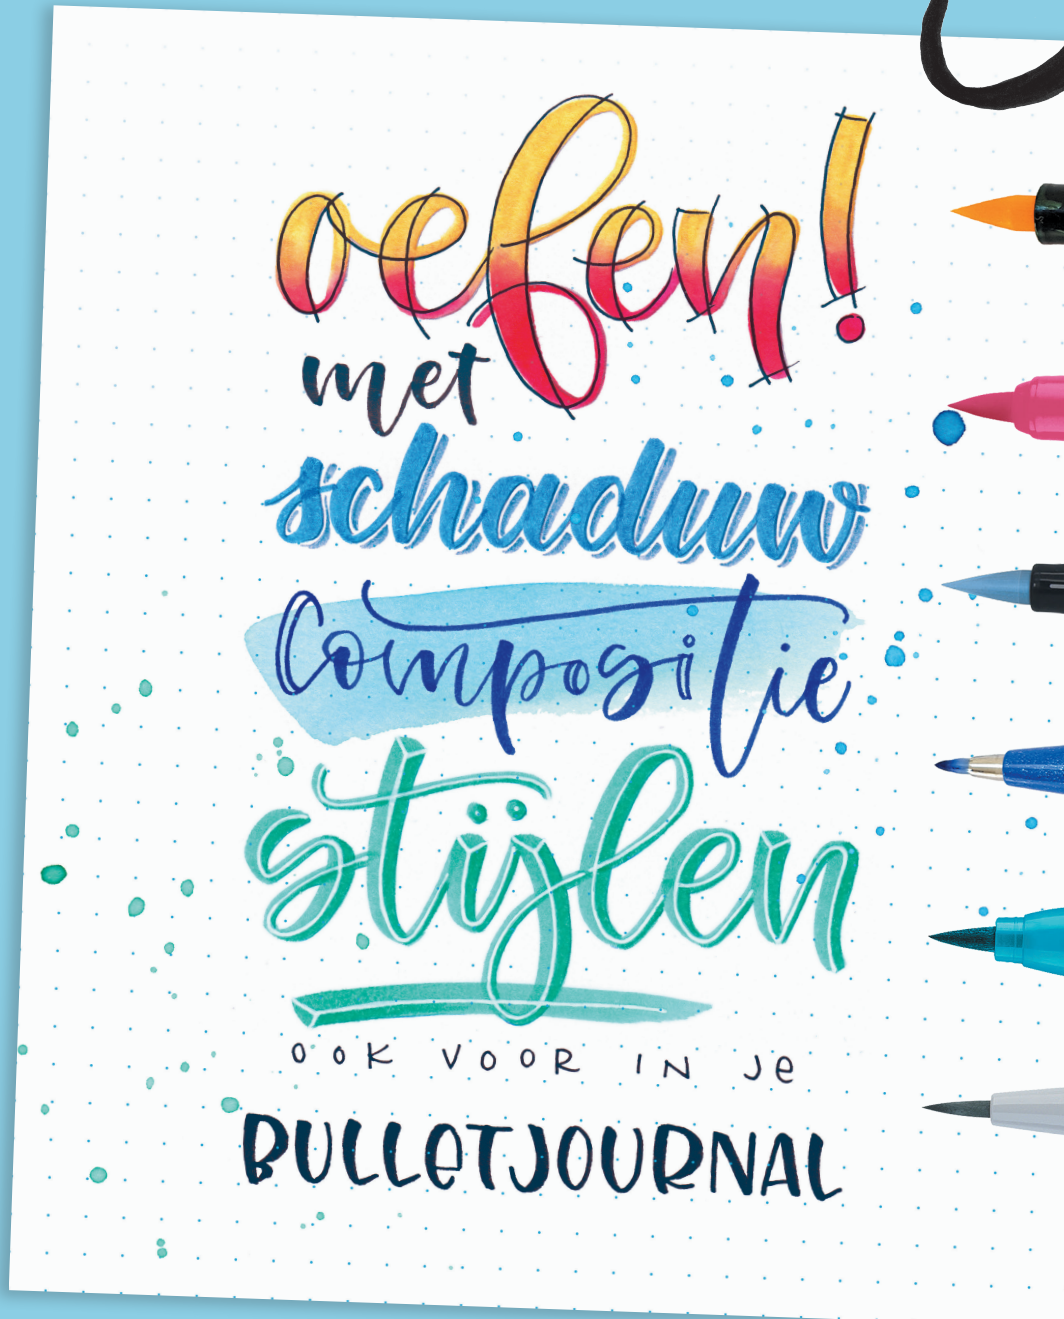 oefen!
met
schaduw
Compositie
stijlen
OOK VOOR IN Je
BULLeTJOURNAL